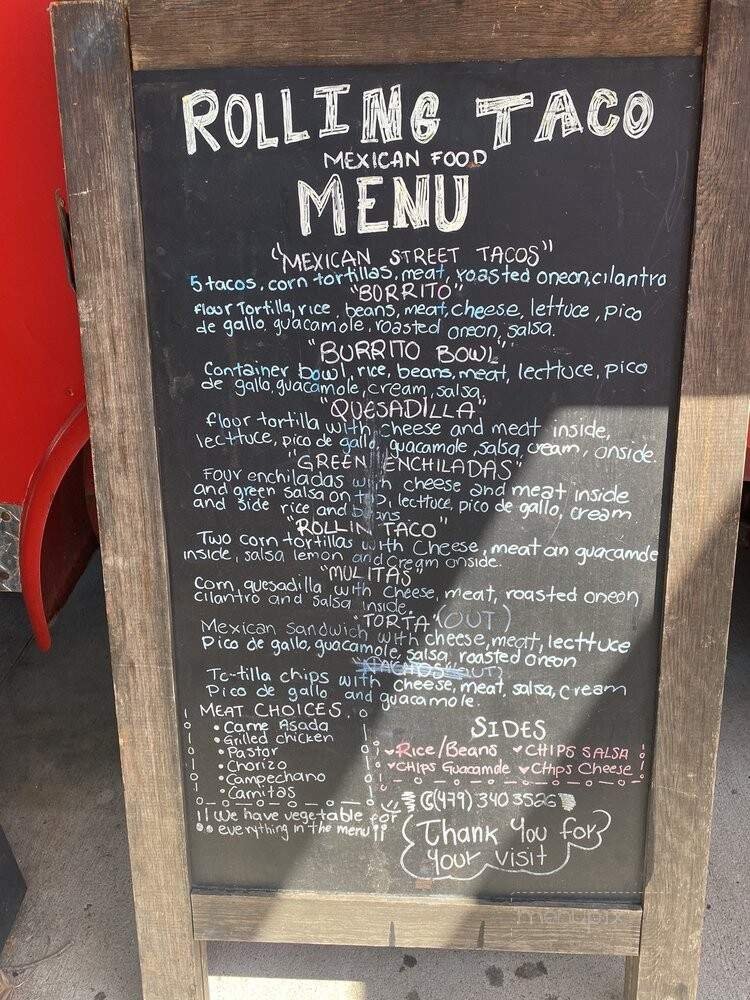 ROLLING TACO
MEXICAN FOOD
MENU
"MEXICAN STREET TACOS"
5 tacos, corn tortillas, meat, roasted oneon, cilantro
"BORRITO"
Flour Tortilla, rice, beans, meat, cheese, lettuce, pico
de gallo, guacamole, roasted oneon, salsa.
"BURRITO BOWL"
Container bowl, rice, beans, meat, lecttuce, pico
de gallo, guacamole, cream, salsa,
"QUESADILLA"
flour tortilla with cheese and meat inside,
lecttuce, pico de gallo, guacamole, salsa, cream, onside.
"GREEN ENCHILADAS"
FOUR enchiladas with cheese and meat inside
and green salsa on top, lecttuce, pico de gallo, cream
and side rice and beans
"ROLLIN TACO"
Two corn tortillas with Cheese, meat an guacamole
inside, salsa lemon and cream onside.
"MULITAS"
Corn quesadilla with Cheese, meat, roasted oneon
cilantro and salsa inside.
"TORTA" (OUT)
Mexican sandwich with cheese, meat, lecttuce
Pico de gallo, guacamole, salsa, roasted oneon
"NACHOS" OUT
To-tilla chips with cheese, meat, salsa, cream
Pico de gallo and guacamole.
MEAT CHOICES.
• Carne Asada
• Grilled chicken
• Pastor
• Chorizo
• Campechano
• Carnitas
!! We have vegetable for
everything in the menu !!
SIDES
Rice/Beans CHIPS SALSA
CHIPS Guacamole Chips Cheese
(479) 340 3526
Thank You for
your visit
menupix